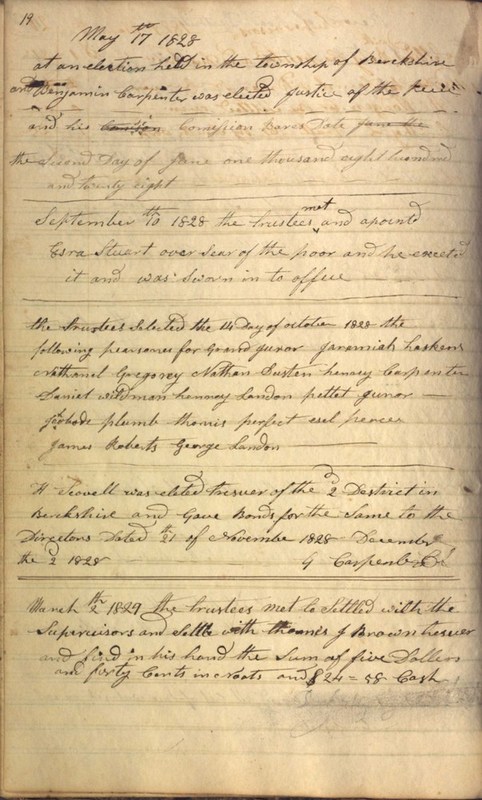 19
May 17th 1828
at an election held in the township of Berkshire
and Benjamin Carpenter was elected Justice of the Peice
and his Comission Bares Date June the
the Second Day of June one thousand eight hundred
and twenty eight
September th 10 1828 the trustees met and apointd
Esra Stuert over Sear of the poor and he excetd
it and was Sworn in to office
the Trustees Selected the 14 Day of october 1828 the
following pearsones for Grand Juror Jaramiah haskens
Nathanel Gregorey Nathan Susten hennery Carpenter
Daniel wildman hennery Landon pettet Juror
plumb thomis perfect esel peirce
James Roberts George Landon
H Scovell was elected tresuer of the 2 Destrict in
Berkshire and Gave Bonds for the Same to the
Directors Dated th 21 of November 1828 December
the 2 1828 G Carpenter
March th 2 1829 the trustees met to Settled with the
Supervisors and Settle with thomis J Brown tresuer
and find in his hand the Sum of five Dollers
and forty Cents in and $24=58 Cash